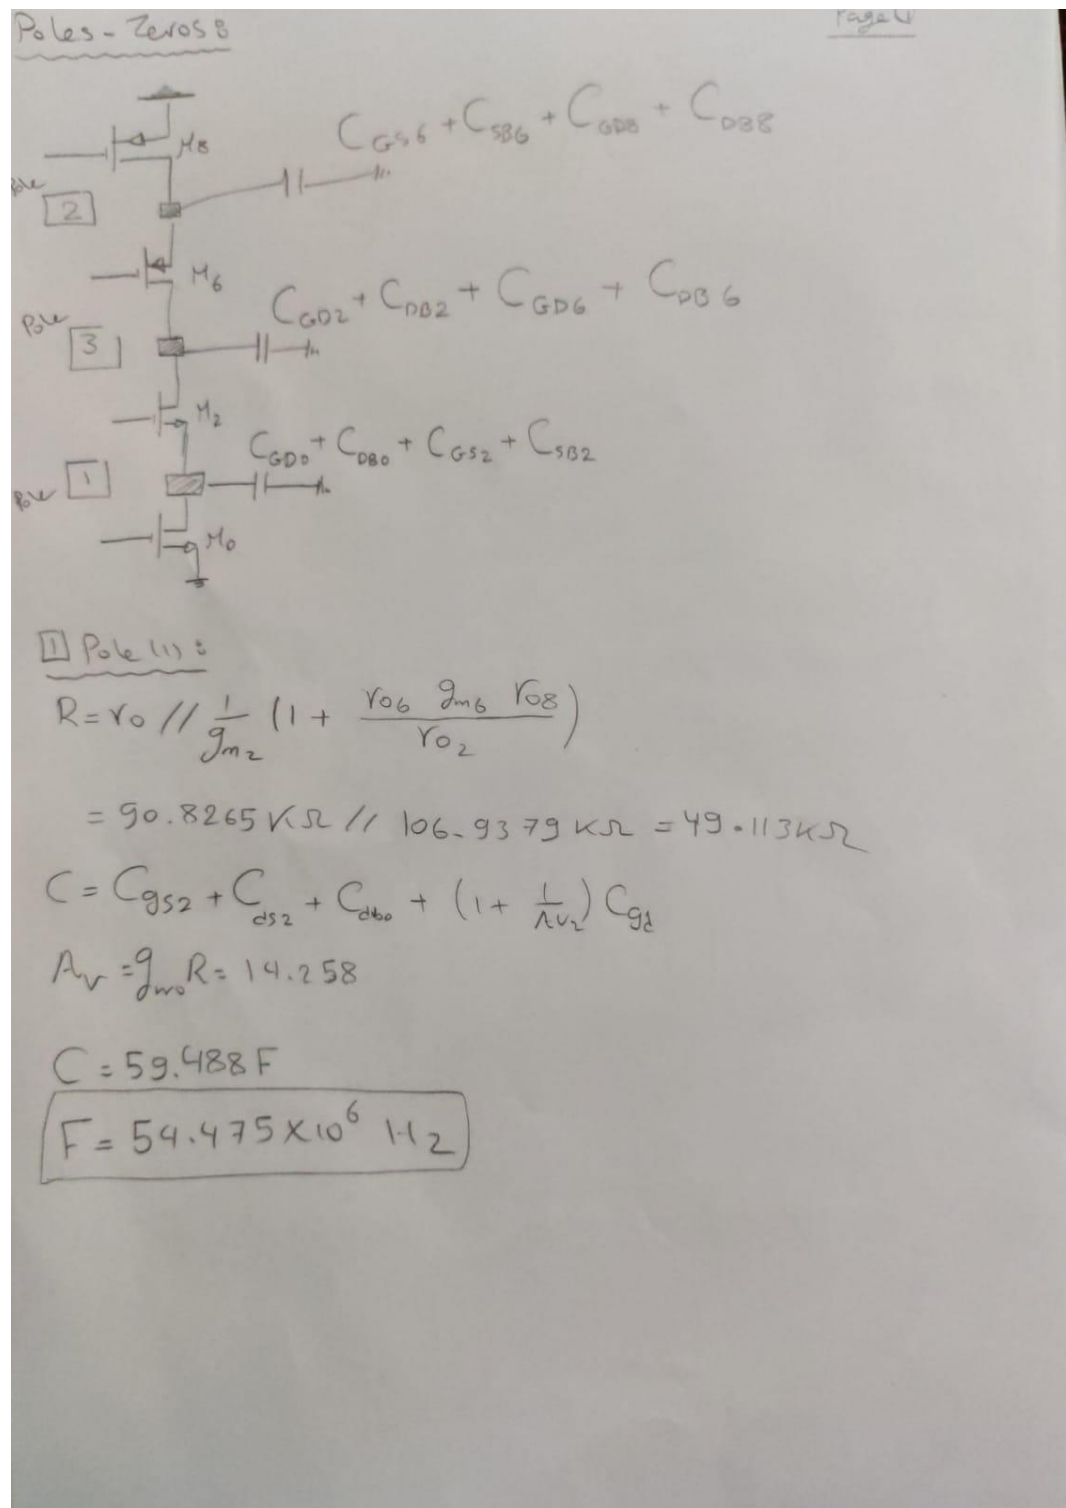 Poles - Zeros :
Page (1)
C_GS6 + C_SB6 + C_GD8 + C_DB8
M8
Pole
2
M6
C_GD2 + C_DB2 + C_GD6 + C_DB6
Pole
3
M2
C_GD0 + C_DB0 + C_GS2 + C_SB2
Pole
1
M0
1 Pole (1) :
R = ro // 1/gm2 (1 + ro6 gm6 ro8 / ro2)
= 90.8265 KΩ // 106.9379 KΩ = 49.113 KΩ
C = Cgs2 + Cds2 + Cdb0 + (1 + 1/Av2) Cgd
Av = gmo R = 14.258
C = 59.488 F
F = 54.475 X 10^6 Hz